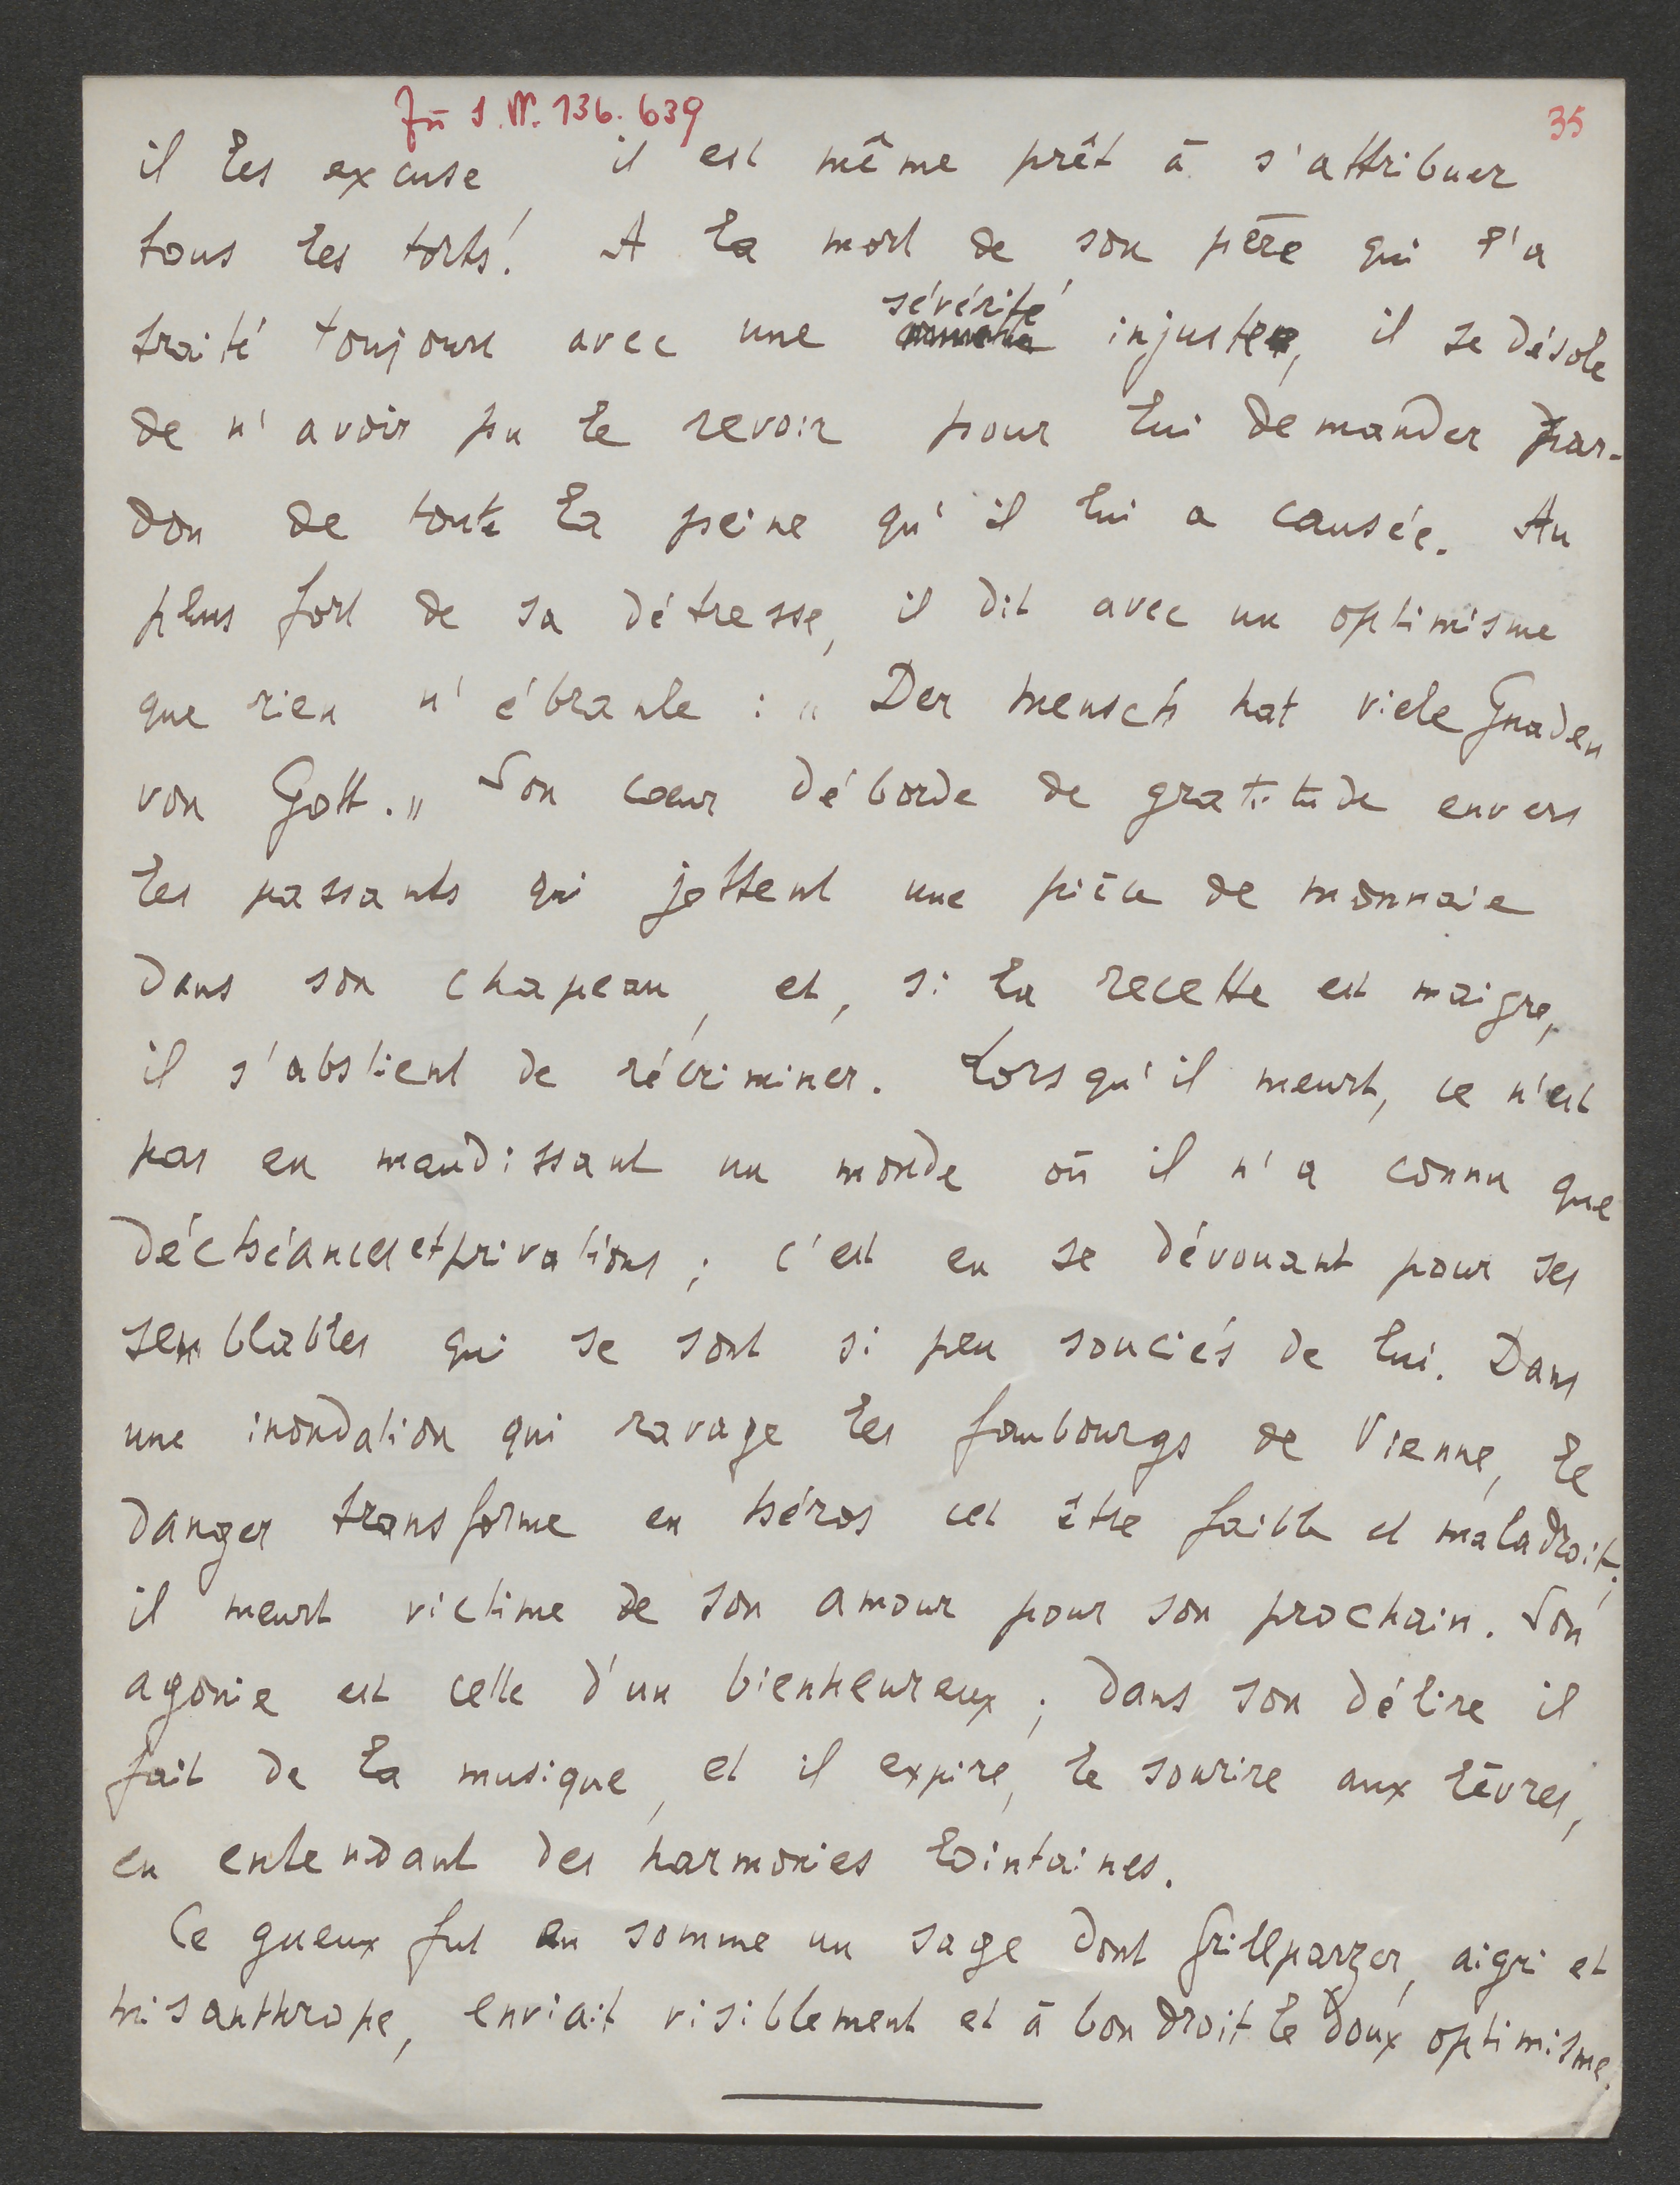 Zu J.N. 136.639
35
il les excuse, il est même prêt à s'attribuer
tous les torts! A la mort de son père qui l'a
traité toujours avec une sévérité injuste, il se désole
de n'avoir pu le revoir pour lui demander par-
don de toute la peine qu'il lui a causée. Au
plus fort de sa détresse, il dit avec un optimisme
que rien n'ébranle : „ Der Mensch hat viele Gnaden
von Gott. „ Son cœur déborde de gratitude envers
les passants qui jettent une pièce de monnaie
dans son chapeau, et, si la recette est maigre,
il s'abstient de récriminer. Lorsqu'il meurt, ce n'est
pas en maudissant un monde où il n'a connu que
déchéances et privations ; c'est en se dévouant pour ses
semblables qui se sont si peu souciés de lui. Dans
une inondation qui ravage les faubourgs de Vienne, le
danger transforme en héros cet être faible et maladroit;
il meurt victime de son amour pour son prochain. Son
agonie est celle d'un bienheureux ; dans son délire il
fait de la musique, et il expire, le sourire aux lèvres,
en entendant des harmonies lointaines.
Ce gueux fut en somme un sage dont Grillparzer, aigri et
misanthrope, enviait visiblement et à bon droit le doux optimisme.